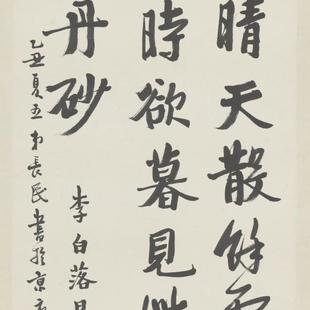 晴天散餘
時欲暮見
丹砂
李白落
乙丑夏五弟長民書於京